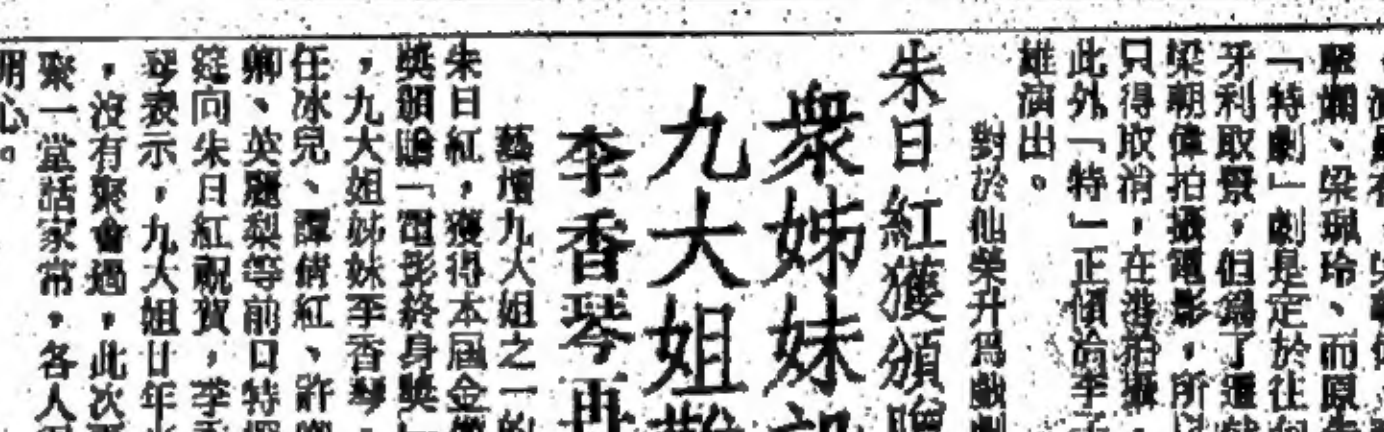 壓嫻、梁珮玲、而原
「特劇」劇是定於往匈
牙利取景，但爲了遷就
梁朝偉拍攝電影，所以
只得取消，在港拍攝，
此外「特」正傾洽李
雄演出。
對於仙榮升爲戲劇
朱日紅獲頒贈
衆姊妹
九大姐難
李香琴再
藝壇九大姐之一的
朱日紅，獲得本屆金像
獎頒贈「電影終身獎」
，九大姐姊妹李香琴、
任冰兒、譚倩紅、許卿
卿、英麗梨等前日特擺
筵向朱日紅祝賀，李香
琴表示，九大姐廿年來
，沒有聚會過，此次再
聚一堂話家常，各人
明心。